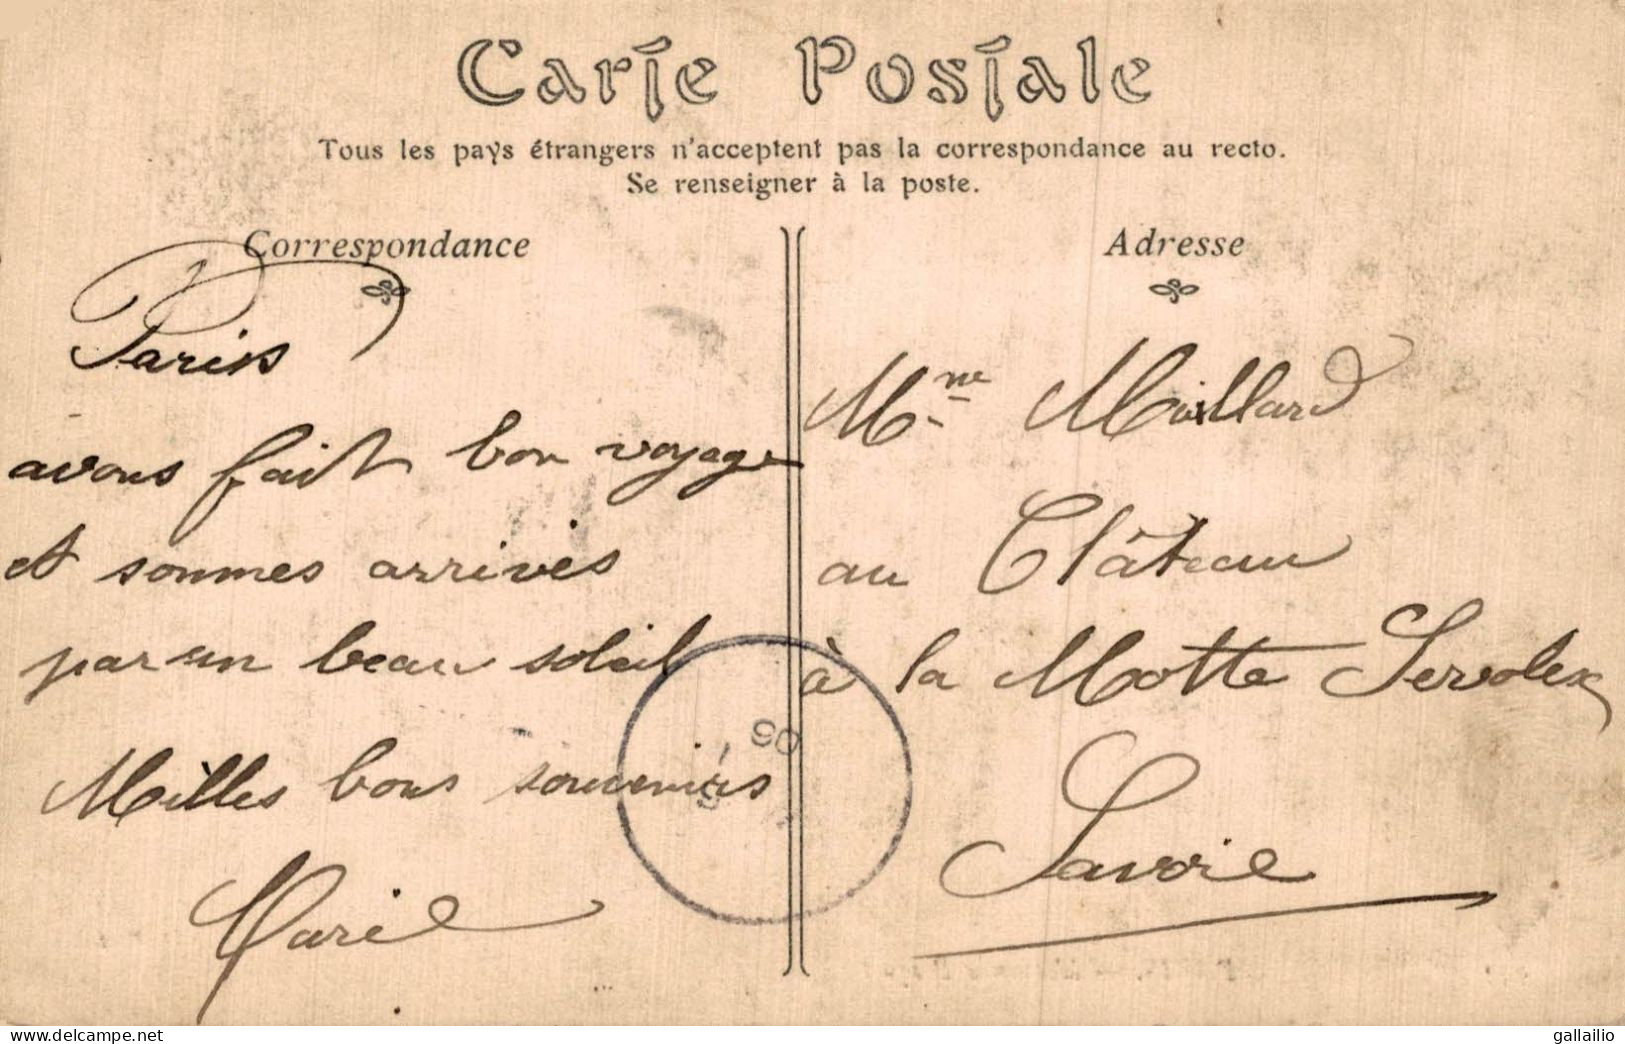 Carte Postale
Tous les pays étrangers n'acceptent pas la correspondance au recto.
Se renseigner à la poste.
Correspondance
Paris
avons fait bon voyage
et sommes arrivés
par un beau soleil
Milles bons souvenirs
Marie
Adresse
Mme Maillard
au Château
à la Motte Servolex
Savoie
06
www.delcampe.net
gallailio